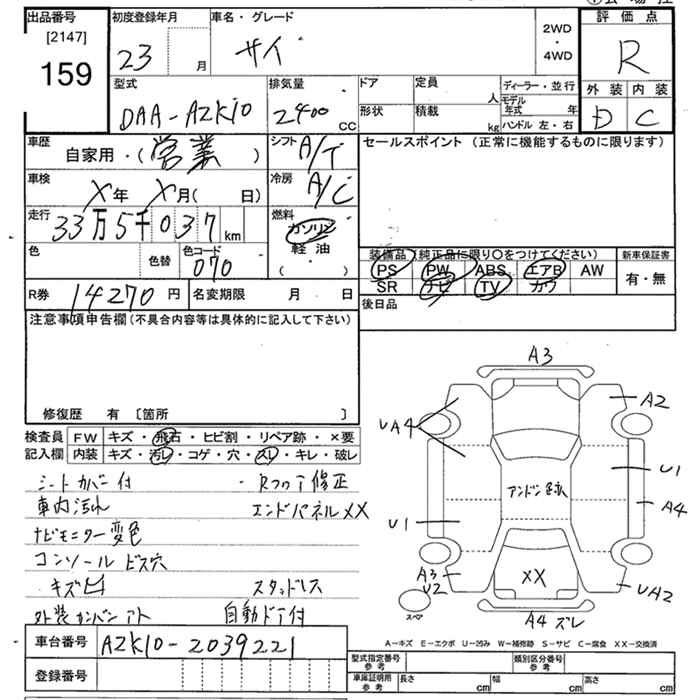 出品番号
[2147]
159
初度登録年月
23 月
車名・グレード
サイ
2WD
・
4WD
評価点
R
外装 内装
D C
型式
DAA-AZK10
排気量
2400 CC
ドア
形状
定員 人
積載 kg
ディーラー・並行
モデル年式 年
ハンドル 左・右
車歴
自家用・(営業)
シフト A/T
セールスポイント (正常に機能するものに限ります)
車検
X年 X月( 日)
冷房 A/C
走行
33万5千037 km
燃料
ガソリン
軽油
( )
色
色替
色コード
070
装備品 (純正品に限り○をつけてください)
PS PW ABS エアB AW
SR ナビ TV カワ
新車保証書
有・無
R券 14270円
名変期限 月 日
後日品
注意事項申告欄 (不具合内容等は具体的に記入して下さい)
修復歴 有 〔箇所 〕
検査員
記入欄
FW キズ・飛石・ヒビ割・リペア跡・×要
内装 キズ・汚レ・コゲ・穴・スレ・キレ・破レ
シートカバー付 ・Rフロア修正
車内汚れ エンドパネルXX
ナビモニター変色
コンソール ビス穴
キズ凹 スタッドレス
外装カンバンアト 自動ドア付
A3
A2
UA4
U1
アンドン
A4
U1
A3
U2
XX
UA2
スペア
A4 ズレ
A-キズ E-エクボ U-凹み W-補修跡 S-サビ C-腐食 XX-交換済
車台番号 AZK10-2039221
登録番号
型式指定番号
参考
類別区分番号
参考
車庫証明用
参考
長さ cm 幅 cm 高さ cm